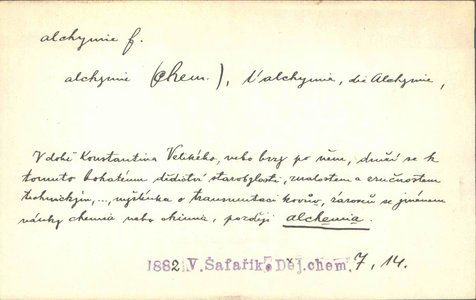 alchymie f.
alchymie (chem.), l'alchymie, die Alchymie,
V době Konstantina Velikého, nebo brzy po něm, druží se k
tomuto bohatému dědictví starobylosti, znalostem a zručnostem
technickým, ..., myšlénka o transmutaci kovův, zároveň se jménem
náuky chemia nebo chimia, později alchemia.
1882 V. Šafařík, Děj. chem. 7, 14.